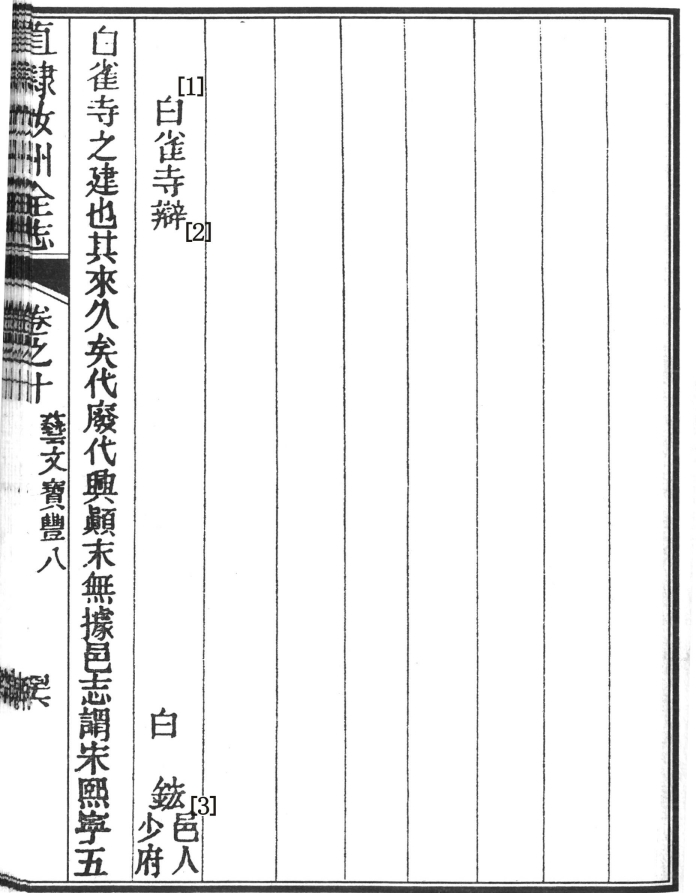 [1]
白雀寺辯[2]
白
[3]
邑人
少府
白雀寺之建也其來久矣代廢代興顚末無據邑志謂宋熙寧五
直隸汝州全志
卷之十
藝文寶豐八